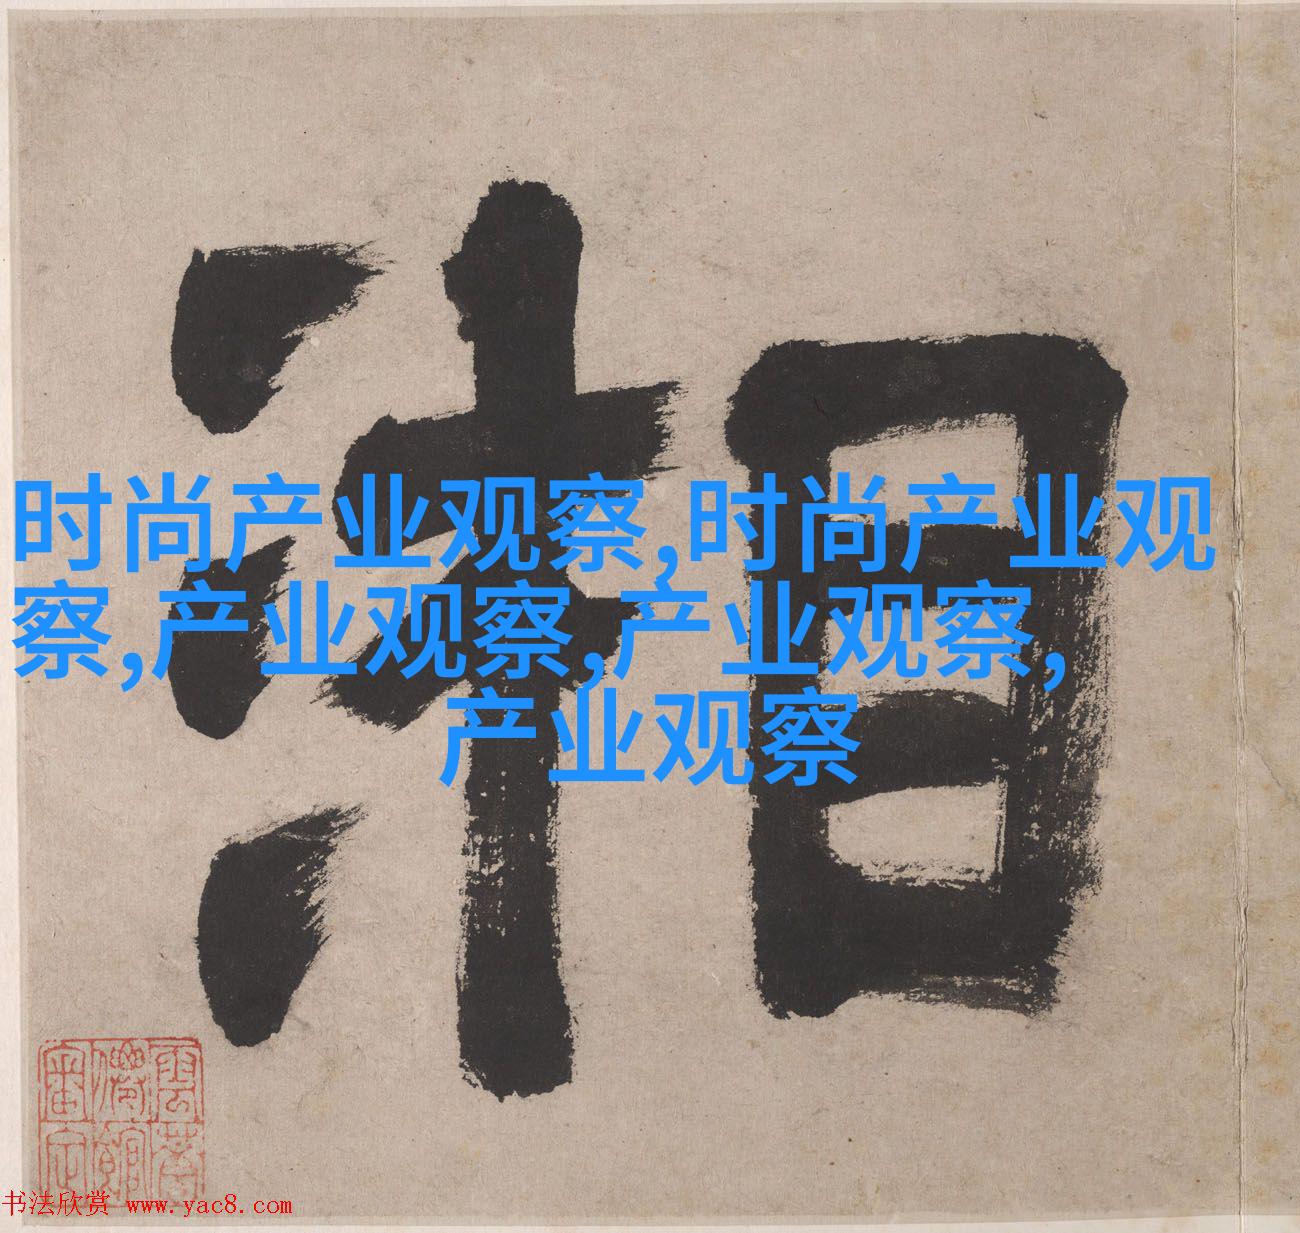 湘
时尚产业观察,时尚产业观
察,产业观察,产业观察,
产业观察
书法欣赏 www.yac8.com